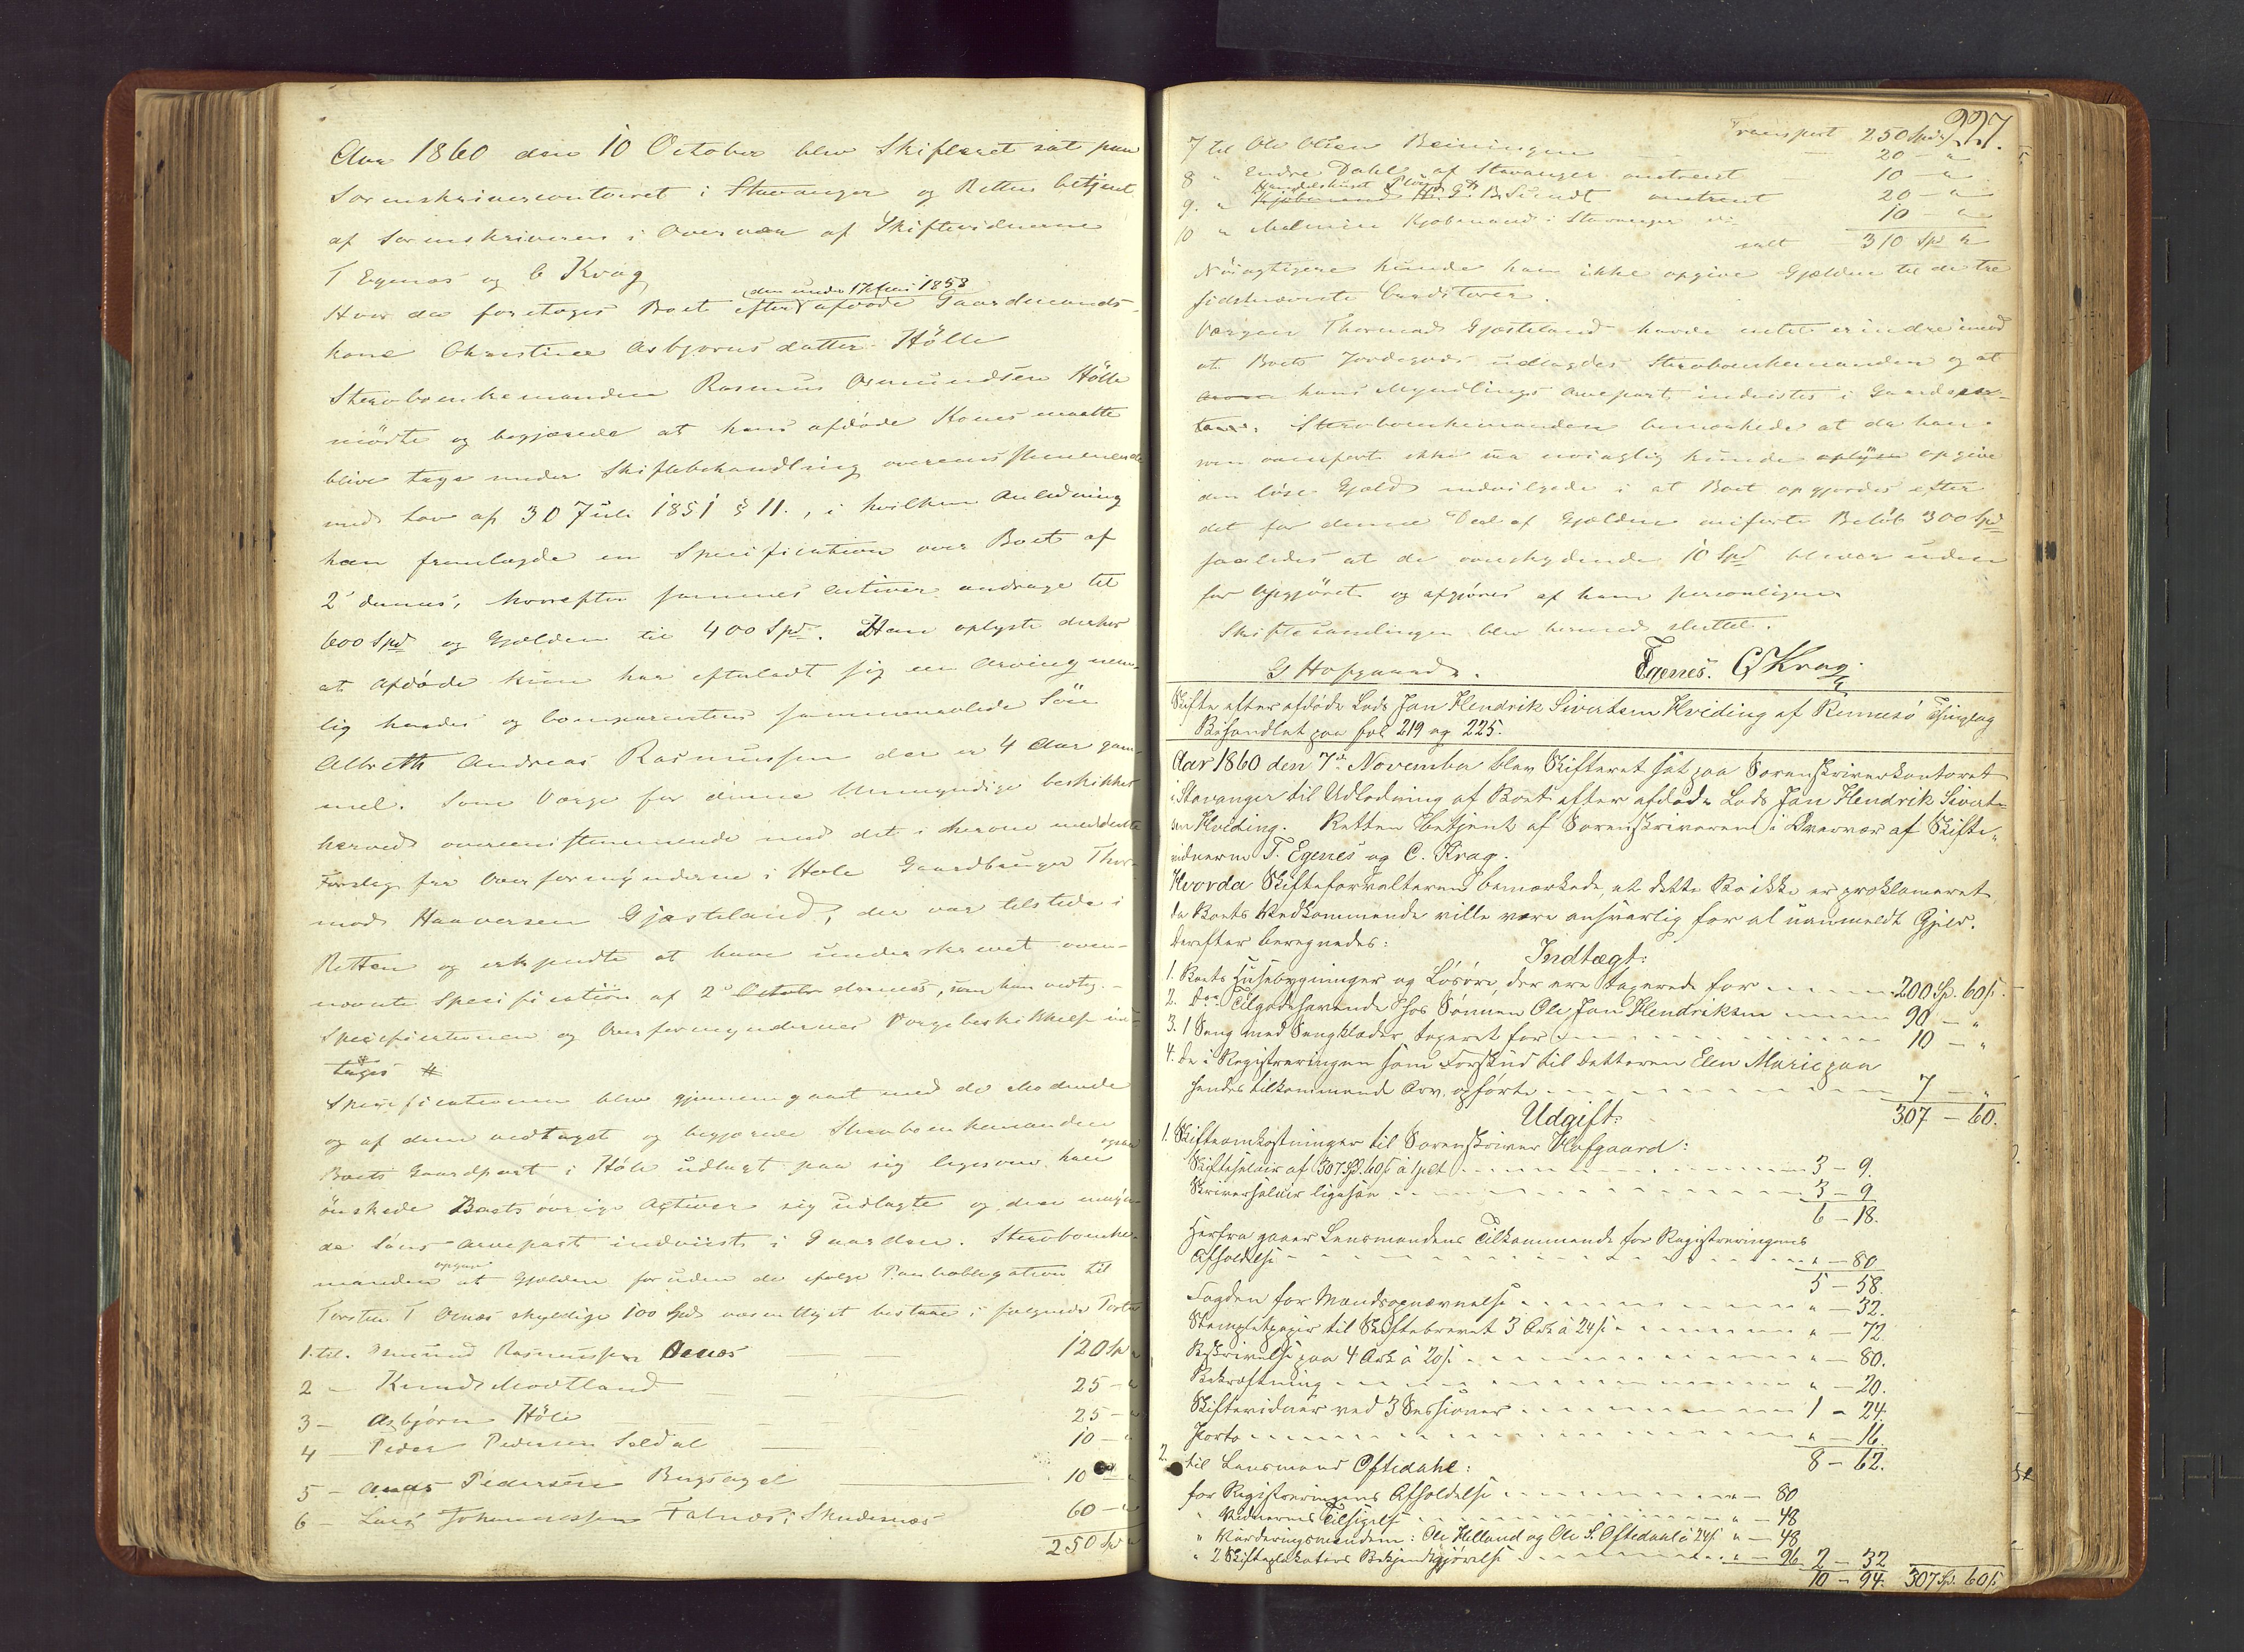 Aar 1860 den 10 October blev Skifteret sat paa
Sorenskrivercontoiret i Stavanger og Retten betjent
af Sorenskriveren i Overvær af Skiftevidnerne
T Egenæs og C Krag
Hvor da foretoges Boet efter den under 17 Juni 1858 afdøde Gaardmands-
kone Christine Asbjørnsdatter Hölle
Sterboenkemanden Rasmus Osmundsen Hölle
mødte og begjærede at hans afdøde Kones maatte
blive tage under Skiftebehandling overensstemmende
med Lov af 30 Juli 1851 § 11., i hvilken Anledning
han fremlagde en Specification over Boet af
2 dennes, hvorefter sammes Activer andrage til
600 Spd og Gjælden til 400 Spd. Han oplyste derhos
at Afdøde kun har efterladt sig en Arving nem-
lig hendes og Comparentens sammenavlede Søn
Albreth Andreas Rasmussen der er 4 Aar gam-
mel. Som Værge for denne Umyndige beskikkes
herved overensstemmende med det i herom meddelte
Forslag fra Overformynderne i Hole Gaardbruger Thor-
mod Haaversen Gjæsteland, der var tilstede i
Retten og erkjendte at have underskrevet oven-
nævnte Specification af 2 October dennes, som han vedtog. -
Specificationen og Overformyndernes Værgebeskikkelse ind-
tages #
Specificationen blev gjennemgaaet med de Mødende
og af dem vedtaget og begjærede Sterboenkemanden
Boets Gaardpart i Höle udlagt paa sig ligesom han ogsaa
ønskede Boets øvrige Activer sig udlagte og den umyn-
de Søns Arvepart indviist i Gaarden. Sterboenke-
manden opgav at Gjælden foruden de ifølge Panteobligation til
Torsten T Osnæs skyldige 100 Spd væsentligst bestaar i følgende Poster
1. til. Amund Rasmussen Osnæs 120 Sp "
2 - Knud Modtland 25 - "
3 - Asbjørn Höle 25 - "
4 - Peder Pedersen Seldal 10 - "
5 - Pedersen Bergsagel 10 - "
6 - Lars Johannessen Falnæs i Skudesnæs 60 - "
250 Spd "
227.
Transport 250 Spd "
7 til Ole Olsen Beiningen 20 - "
8 " Endre Dahl af Stavanger omtrent 10 - "
9. " Handelshuset Plough Kjøbmand H. G. B Sundt omtrent 20 - "
10 " Malmin Kjøbmand i Stavanger 10 - "
salt 310 Spd "
Nöiagtigere kunde han ikke opgive Gjælden til de tre
sidstnævnte Creditorer.
Værgen Thormod Gjæsteland havde intet erindre imod
at Boets Jordegods udlagdes Sterboenkemanden og at
hans Myndlings Arvepart indvistes i Gaardspar-
ten. Sterboenkemanden bemærkede at da han
som ovenført ikke saa nöiagtig kunde oplyse opgive
den löse Gjæld indvilgede i at Boet opgjordes efter
det for denne Deel af Gjælden anførte Beløb 300 Spd
saaledes at de overskydende 10 Spd bliver uden
for Opgjöret og afgjöres af ham personligen.
Skiftesamlingen blev hermed sluttet.
G Hofgaard. Egenes. C Krag.
Skifte efter afdøde Lods Jan Hendrik Sivertsen Hviding af Rennesö Thinglag
Behandlet paa fol 219 og 225.
Aar 1860 den 7de November blev Skifteret sat paa Sorenskriverkontoret
i Stavanger til Udlodning af Boet efter afdøde Lods Jan Hendrik Sivert-
sen Hviding. Retten betjent af Sorenskriveren i Overvær af Skifte-
vidnerne T. Egenes og C. Krag.
Hvorda Skifteforvalteren bemærkede, at dette Bo ikke er proklameret
da Boets Vedkommende ville være ansvarlig for al uanmeldt Gjeld.
Derefter beregnedes:
Indtægt:
1. Boets Husebygninger og Lösöre, der ere taxerede for 200 Sp. 60 s.
2. Dos Tilgodehavende hos Sønnen Ole Jan Hendriksen 90 - "
3. 1 Seng med Sengklæder, taxeret for 10 - "
4. De i Registreringen som Forskud til Datteren Elen Marie paa
hendes tilkommende Arv, opførte 7 - "
307 - 60.
Udgift:
1. Skifteomkostninger til Sorenskriver Hofgaard:
Skiftesalair af 307 Spd. 60 s à 1 pCt 3 - 9
Skriversalair ligesaa 3 - 9
6 - 18.
Herfra gaaer Lensmandens Tilkommende for Registreringens
Afholdelse " - 80
5 - 58.
Fogden for Mandsopnævnelse " - 32.
Stempletpapir til Skiftebrevet 3 Ark à 24 s " - 72
Beskrivelse paa 4 Ark à 20 s " - 80.
Bekræftning " - 20.
Skiftevidner ved 3 Sessioner 1 - 24.
Porto " - 16.
8 - 62.
2. til Lensmand Oftedahl:
for Registreringens Afholdelse " - 80
" Vidnernes Tilsigelse " - 48
" Vurderingsmændene: Ole Helland og Ole S. Oftedahl à 24 s " - 48
" 2 Skifteplakaters Bekjendtgjörelse " - 96 2 - 32
10 - 94. 307 Sp. 60 s